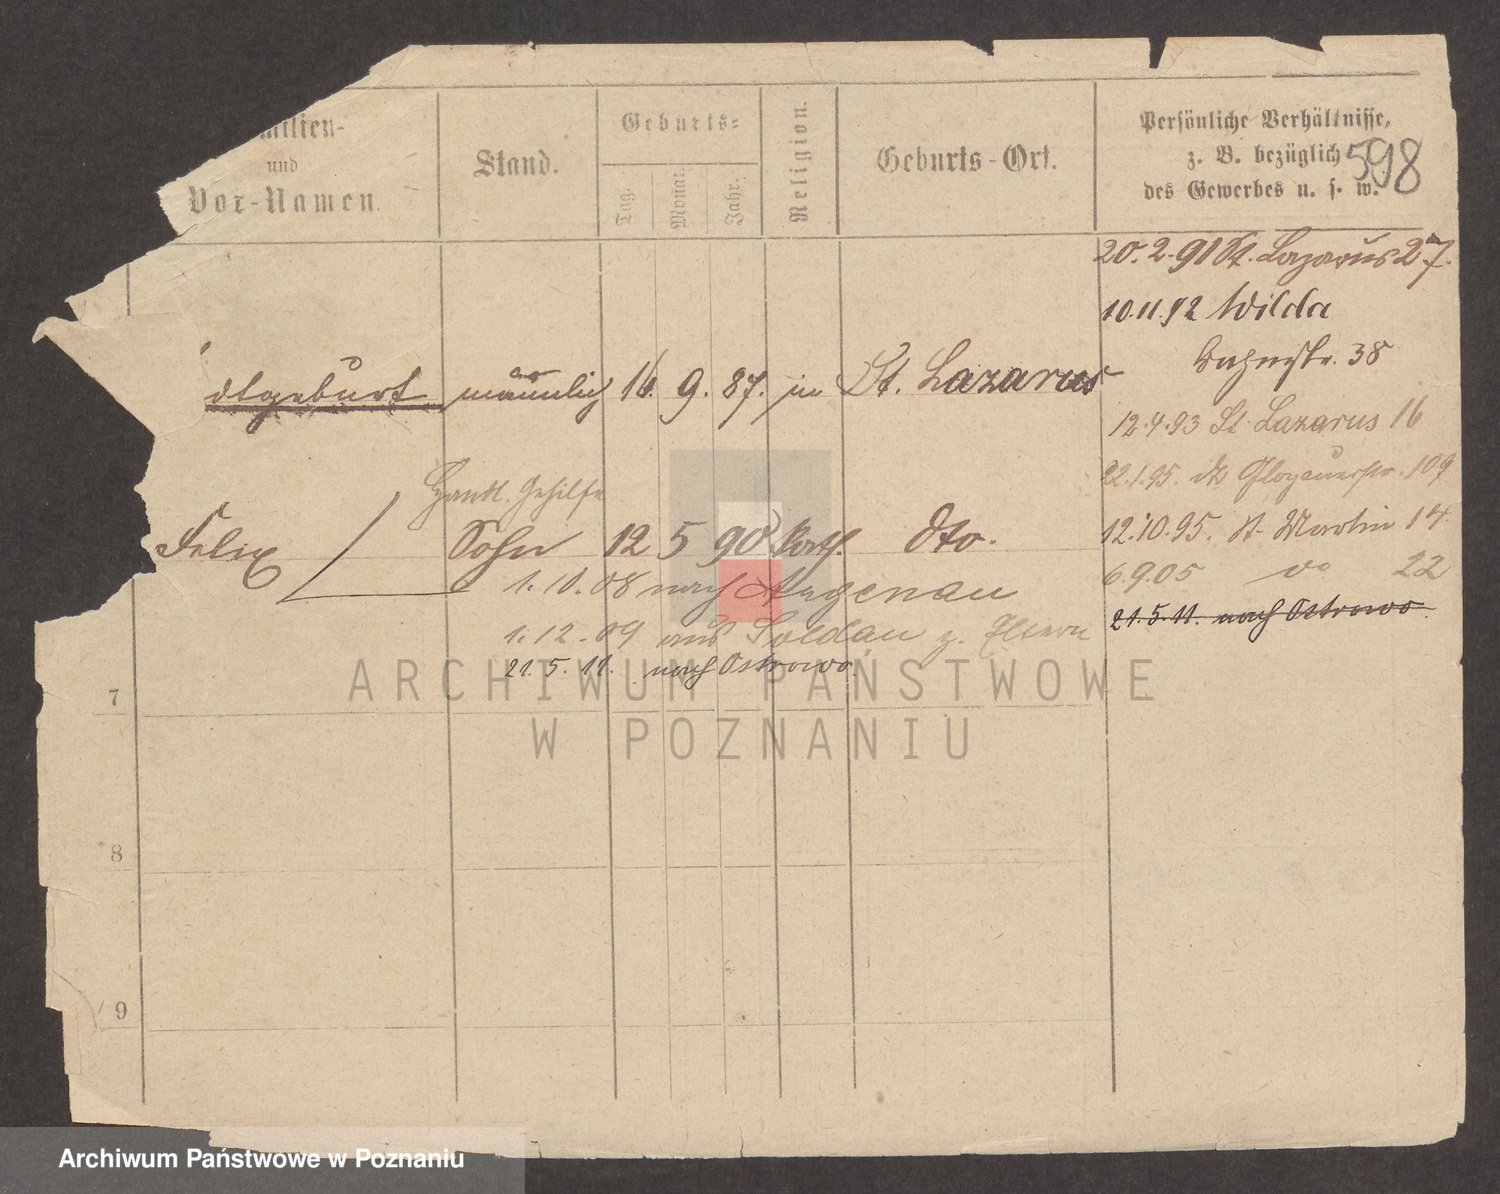 milien-
und
Vor-Namen.
Stand.
Geburts-
Tag.
Monat.
Jahr.
Religion.
Geburts-Ort.
Persönliche Verhältnisse,
z. B. bezüglich
des Gewerbes u. s. w.
598
20.2.91 St. Lazarus 27.
10.11.92 Wilda
Bahnstr. 38
dtgeburt männlich 16. 9. 87. in St. Lazarus
12.4.93 St. Lazarus 16
22.1.95. do Glogauerstr. 109
Handl. Gehilfe
Felix Sohn 12 5 90 kath. dto.
12.10.95. St Martin 14
6.9.05 do 22
1.10.08 nach Argenau
21.5.11. nach Ostrowo
1.12.09 aus Soldau z. Eltern
21.5.11. nach Ostrowo.
7
8
9
ARCHIWUM PAŃSTWOWE
W POZNANIU
Archiwum Państwowe w Poznaniu